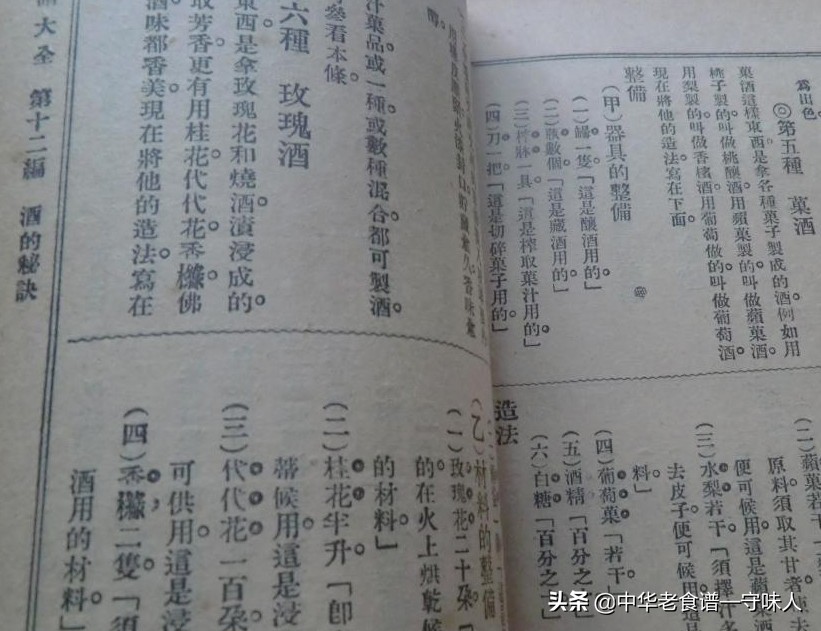 爲出色。
◎第五種　菓酒
菓酒這樣東西。是拿各種菓子製成的酒。例如用
桃子製的。叫做桃釀酒。用蘋菓製的。叫做蘋菓酒。
用梨製的。叫做香檳酒。用葡萄做的。叫做葡萄酒。
現在將他的造法。寫在下面。
整備
（甲）器具的整備
（一）罎一隻。「這是釀酒用的」
（二）瓶數個「這是藏酒用的」
（三）榨牀一具「這是搾取菓汁用的」
（四）刀一把「這是切碎菓子用的」
（二）蘋菓若干
原料須取其甘者
便可候用。這是蘋
酒
（三）水梨若干。「須擇
去皮子。便可候用
料」
（四）葡萄菓「若干
（五）酒精「百分之
（六）白糖「百分之一
造法
汁。菓品或一種或數種混合都可製酒。
參看本條。
六種　玫瑰酒
東西。是拿玫瑰花和燒酒漬浸成的。
取芳香更有用桂花。代代花。香櫞。佛
酒味都香美。現在將他的造法。寫在
大全　第十二編　酒的秘訣
（乙）材料的整備
（一）玫瑰花二十朶「
的在火上烘乾候
的材料」
（二）桂花半升「卽
蒂候用。這是浸
（三）代代花一百朶
可供用。這是浸
（四）香櫞二隻「須
酒用的材料」
头条 @中华老食谱一守味人